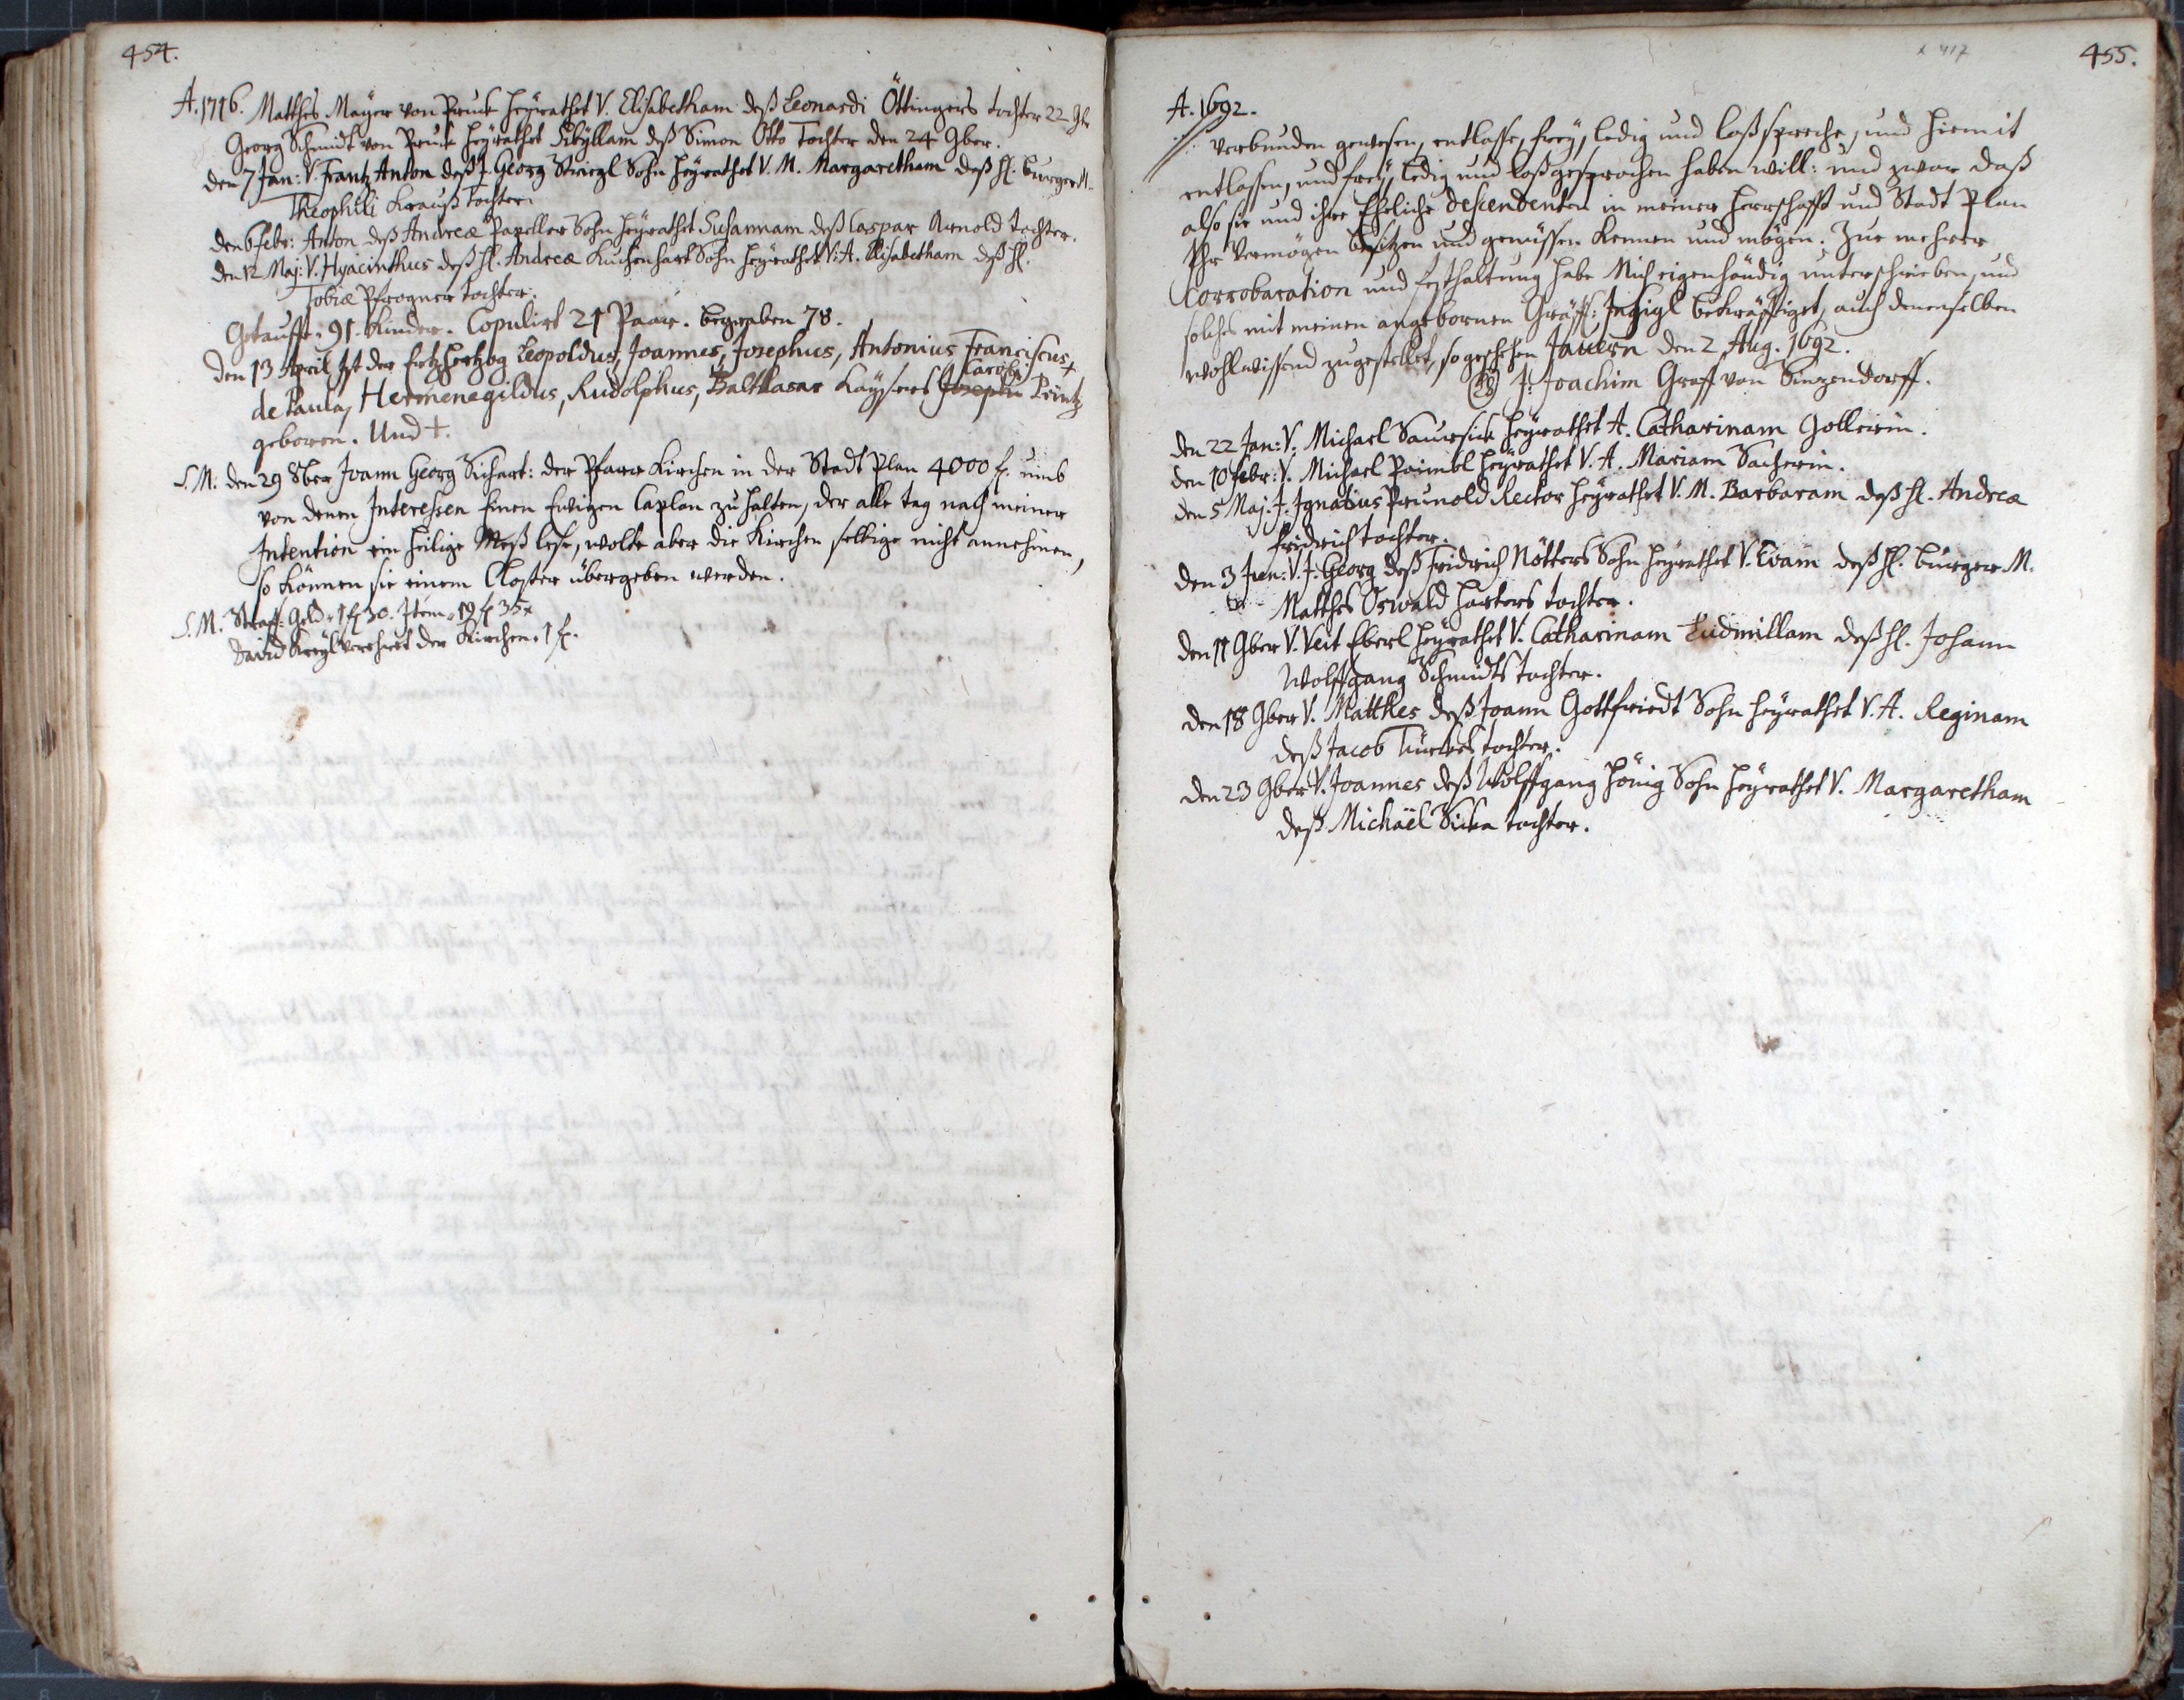 454.
A. 1716. Matthes Mayer von Pruck heyrathet V. Elisabetham deß Leonardi Öttingers tochter 22 9br
Georg Schmidt von Pruck heyrathet Sibyllam deß Simon Otto Tochter den 24 9ber.
den 7 Jan: V. Frantz Anton deß J. Georg Striegl Sohn heyrathet V. M. Margaretham deß H. burger M.
Theophili Krauß tochter.
den 6 Febr: Anton deß Andreæ Papeller Sohn heyrathet Susannam deß Caspar Arnold tochter.
den 12 Maj: V. Hyacinthus deß H. Andreæ Kuchenhart Sohn heyrathet V. A. Elisabetham deß H.
Tobiæ Pfrogner tochter.
Getaufft: 91. Kinder. Copulirt 21 Paar. begraben 78.
den 13 April ist der Ertzhertzog Leopoldus, Joannes, Josephus, Antonius Franciscus
de Paula, Hermenegildus, Rudolphus, Balthasar Kaysers Josephi Caroli Printz
geboren. Und +.
S. M. den 29 8ber Joann Georg Sichart: der Pfarr Kirchen in der Stadt Plan 4000 fl. umb
von denen Interessen Einen Ewigen Caplan zu halten, der alle tag nach meiner
Intention ein heilige Meß lese, wolte aber die Kirchen selbige nicht annehmen,
so können sie einem Closter übergeben werden.
S. M. Straff: Geld. 1 fl 30. Item. 19 fl 35 x
David verehret der Kirchen. 1 fl.
x 417
455.
A. 1692.
verbunden gewesen, entlasse, frey, ledig und loß spreche, und hiemit
entlassen, und frey, ledig und loß gesprochen haben will: und zwar daß
also sie und ihre Eheliche descendenten in meiner Herrschafft und Stadt Plan
Ihr Vermögen besitzen und genüssen kennen und mögen. Zur mehrer
Corrobaration und festhaltung habe Mich eigenhändig unterschrieben, und
solches mit meinen angebornen Gräffl: Insigl bekräfftiget, auch denenselben
wohlwissend zugestellet, so geschehen Jauern den 2 Aug. 1692.
J: Joachim Graff von Sinzendorff.
den 22 Jan: V. Michael Saursick heyrathet A. Catharinam Gollerin.
den 10 Febr: V. Michael Paimbl heyrathet V. A. Mariam Sacherin.
den 5 Maj. J. Ignatius Prunold Rector heyrathet V. M. Barbaram deß H. Andreæ
Fridrich tochter.
den 3 Jun: V. J. Georg deß Fridrich Nötters Sohn heyrathet V. Evam deß H. burger M.
Matthes Oswald Harters tochter.
den 11 9ber V. Veit Eberl heyrathet V. Catharinam Ludmillam deß H. Johann
Wolffgang Schmidts tochter.
den 18 9ber V. Matthes deß Joann Gottfriedt Sohn heyrathet V. A. Reginam
deß Jacob Türckes tochter.
den 23 9ber V. Joannes deß Wolffgang Hönig Sohn heyrathet V. Margaretham
deß Michäel Sicka tochter.